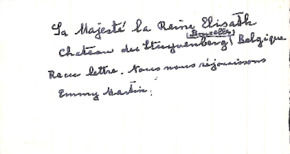 Sa Majesté la Reine Elisabth
(Bruxelles)
Chateau du Stuyvenberg, Belgique
Recu lettre. Nous nous réjouissons
Emmy Martin.